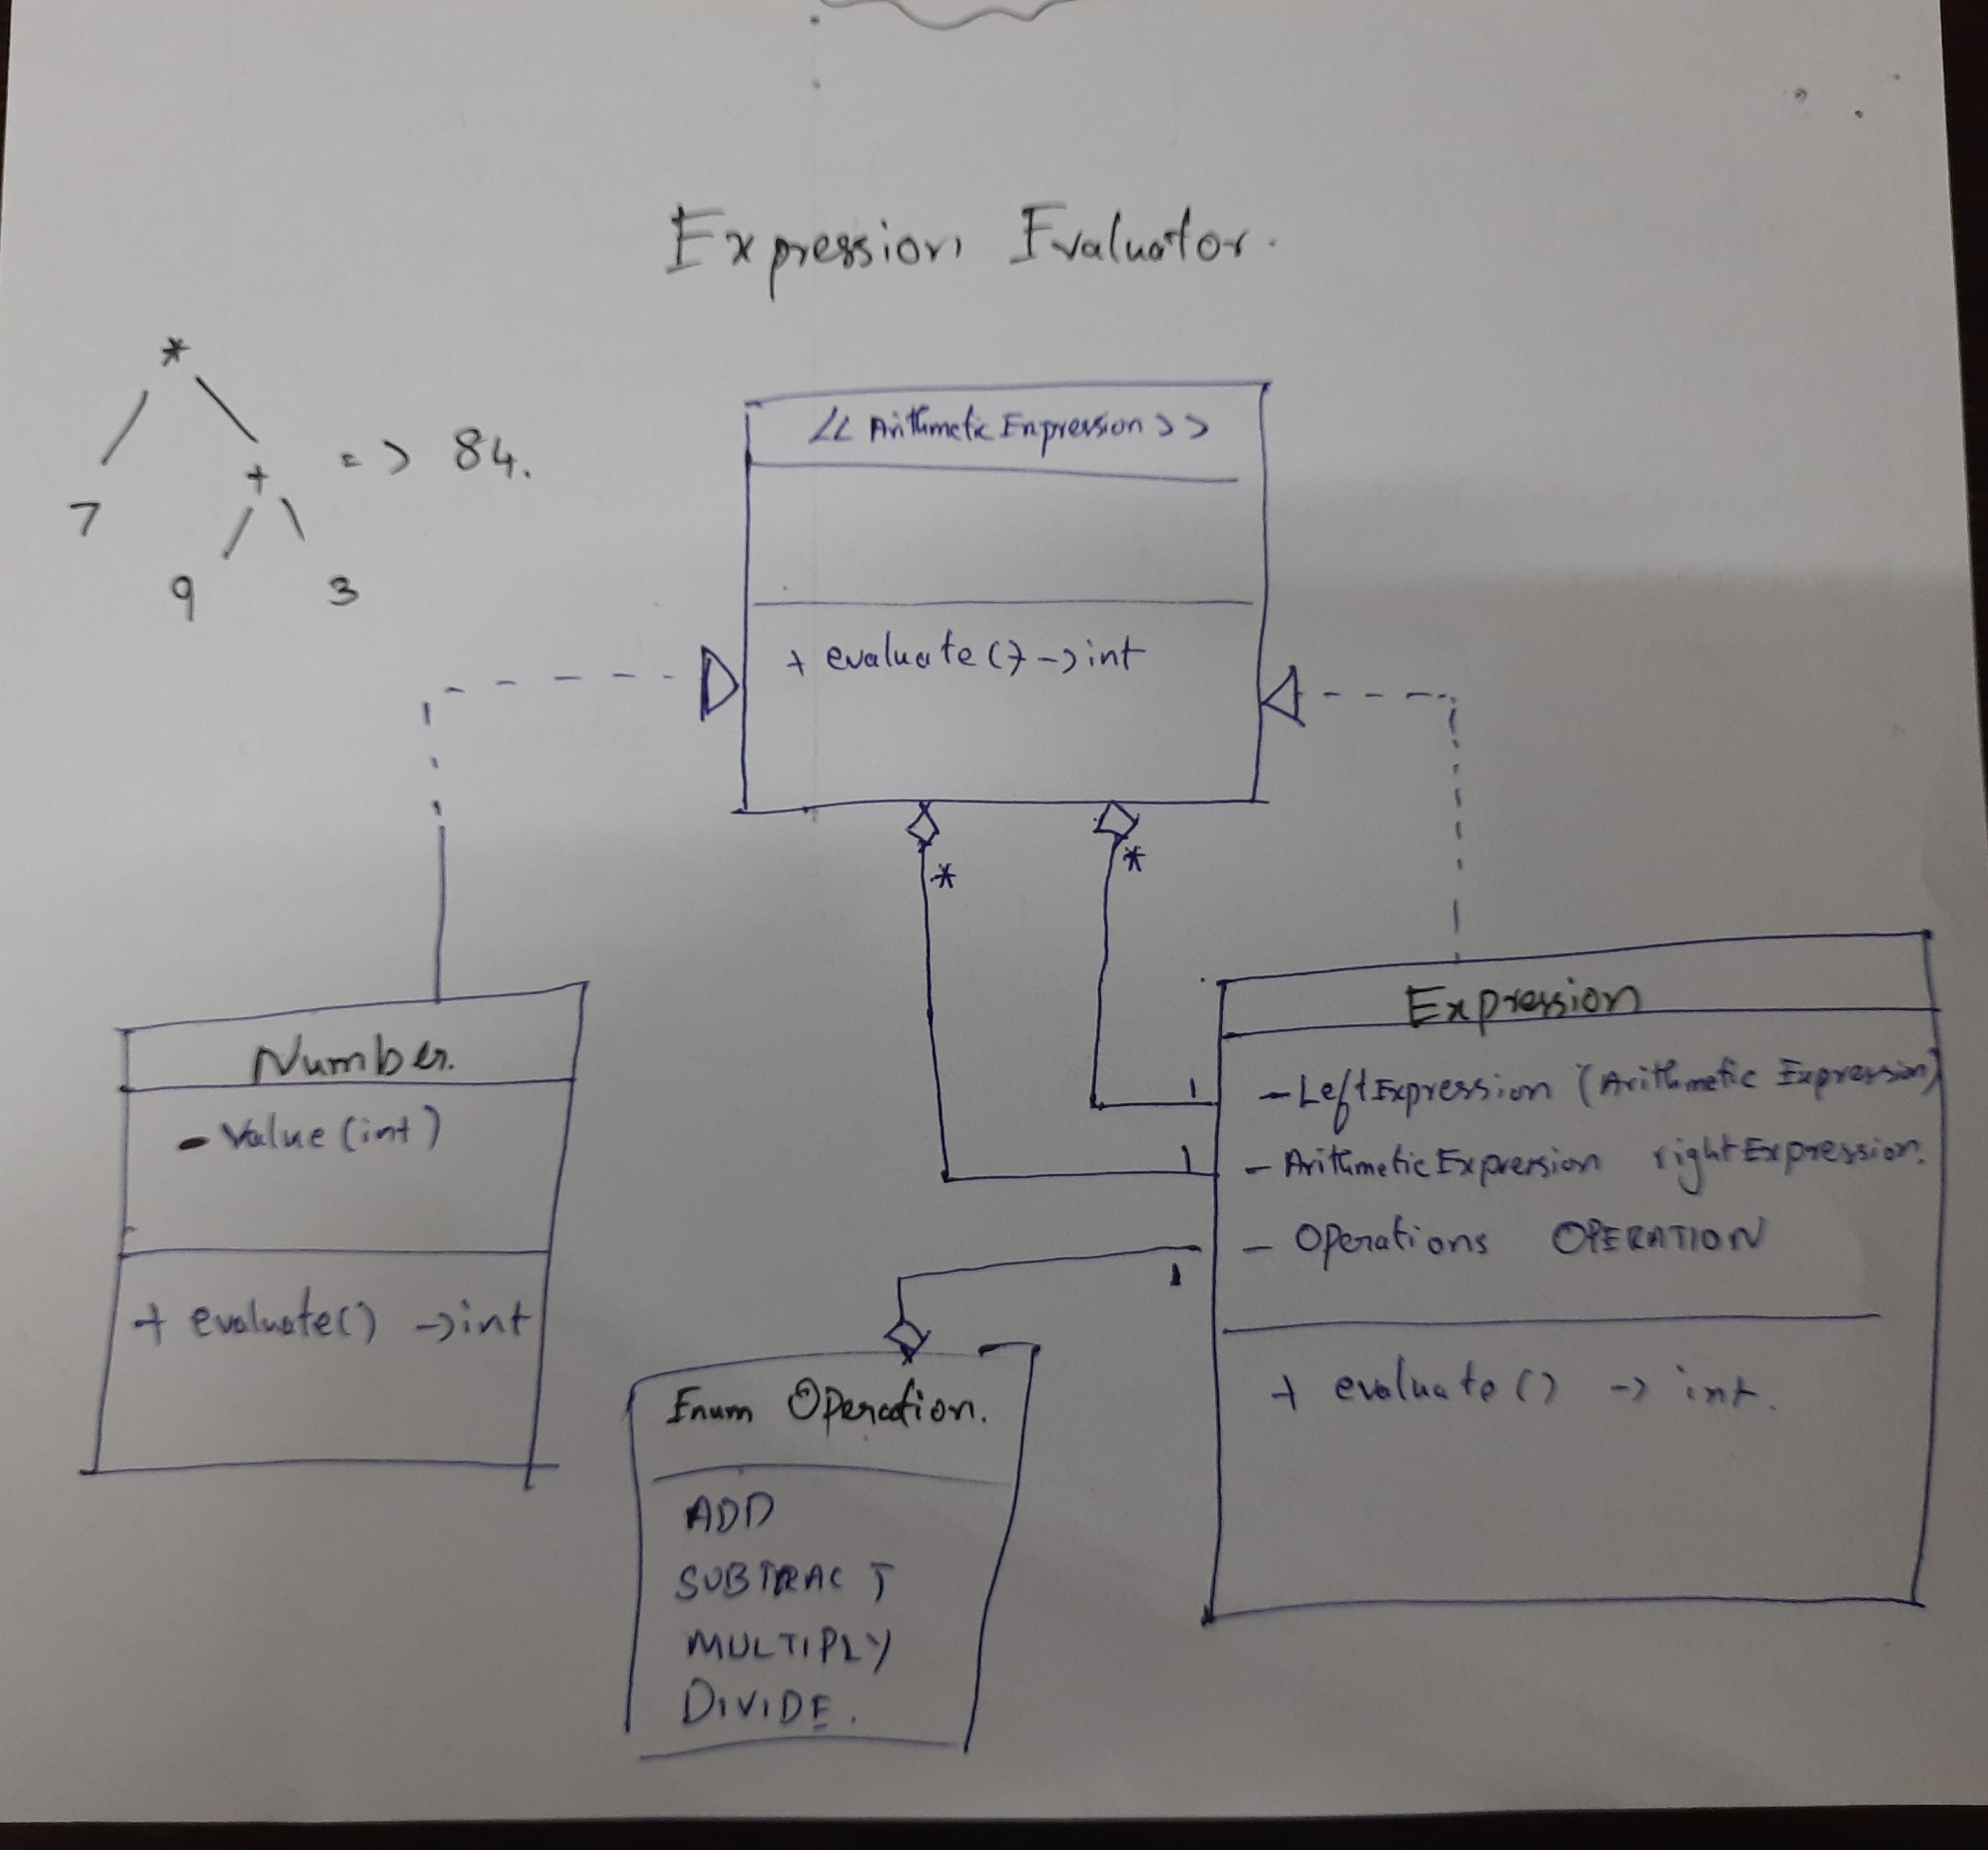 Expression Evaluator.
*
7
+
9
3
=> 84.
<< Arithmetic Expression >>
+ evaluate() -> int
*
*
Number.
- Value (int)
+ evaluate() -> int
Expression
1
- LeftExpression (Arithmetic Expression)
1
- ArithmeticExpression rightExpression.
- Operations OPERATION
1
+ evaluate() -> int.
Enum Operation.
ADD
SUBTRACT
MULTIPLY
DIVIDE.